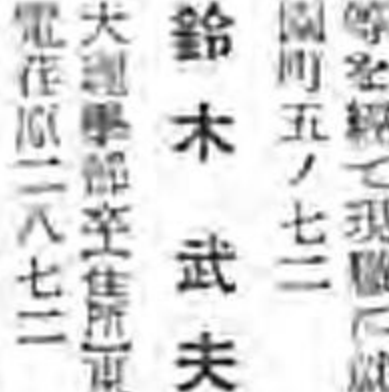 等を経て現職に就
園町五ノ七二
鈴木武夫
大理學部卒【住所】東
電荏原二八七二